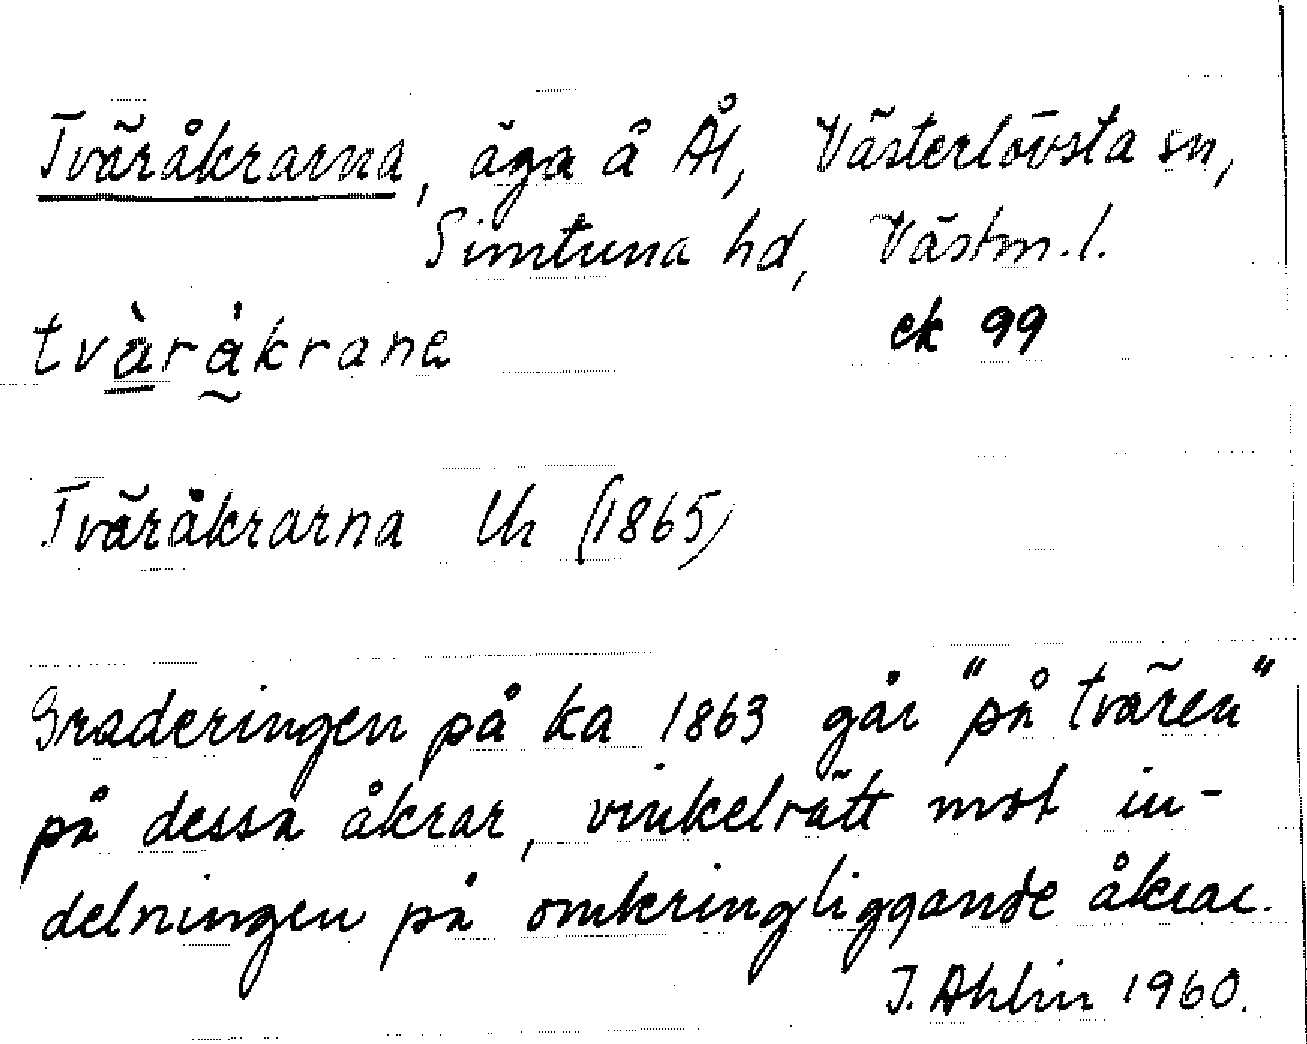 Tväråkrarna, äga å Ål, Västerlövsta sn,
Simtuna hd, Västm. l.
tvàråkrane ek 99
Tväråkrarna Uh (1865)
Graderingen på ka 1863 går "på tvären"
på dessa åkrar, vinkelrätt mot in-
delningen på omkringliggande åkrar.
I. Ahlin 1960.